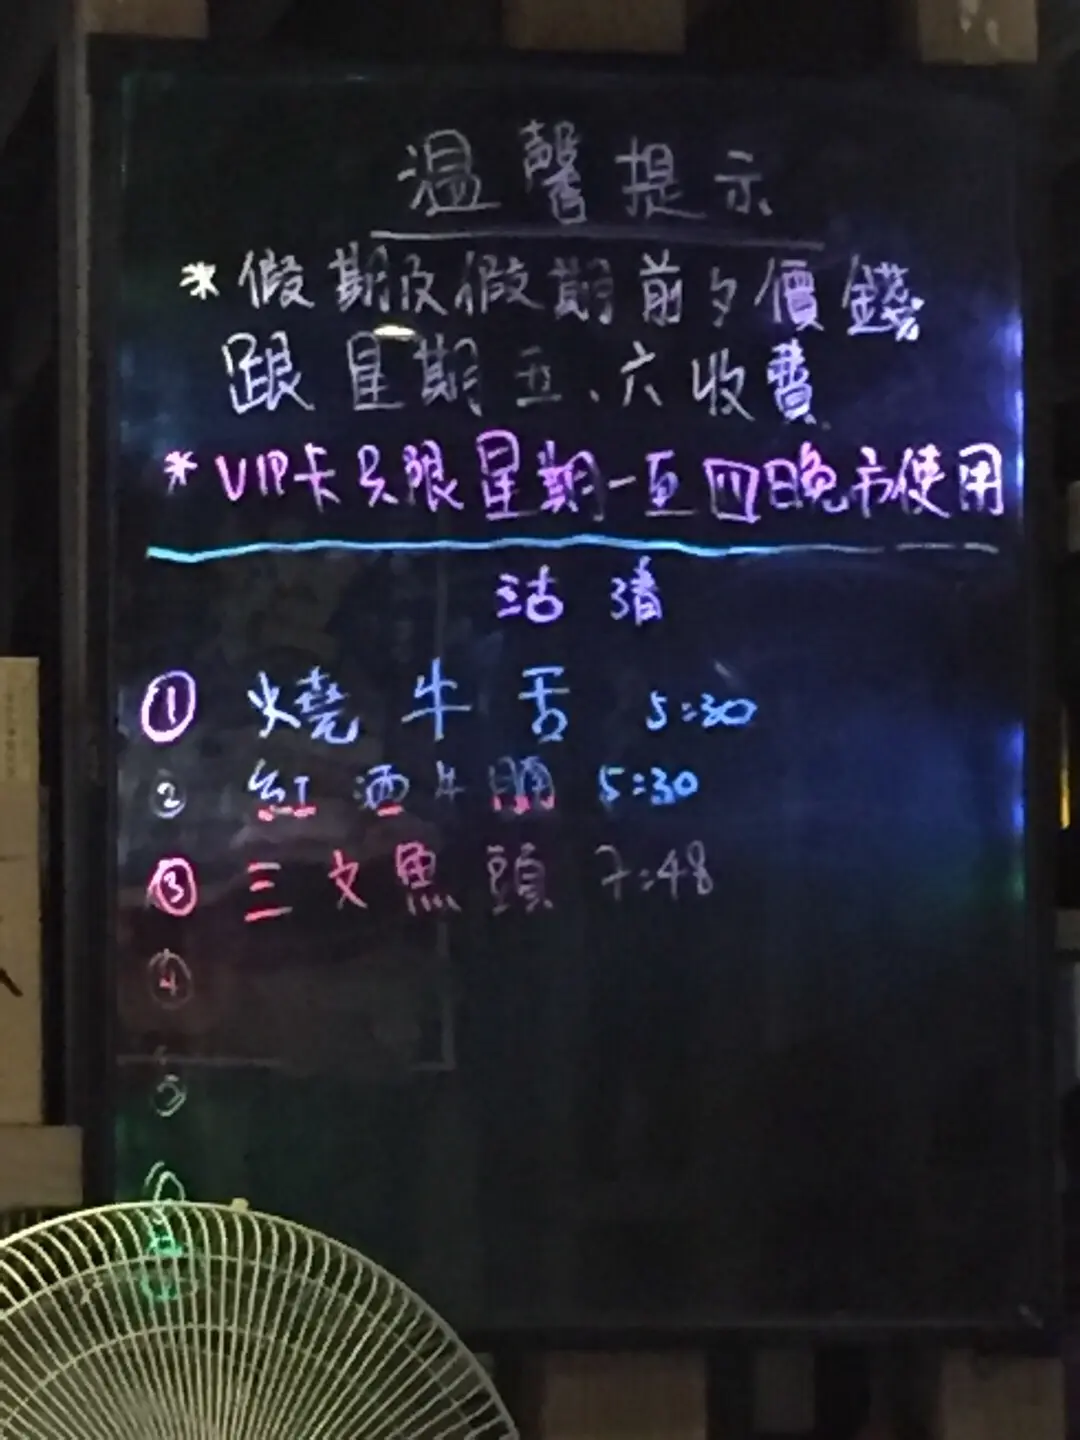 溫馨提示
* 假期及假期前夕價錢
跟星期五、六收費
* VIP卡只限星期一至四晚市使用
沽清
① 燒牛舌 5:30
② 紅酒牛腩 5:30
③ 三文魚頭 7:48
④
⑤